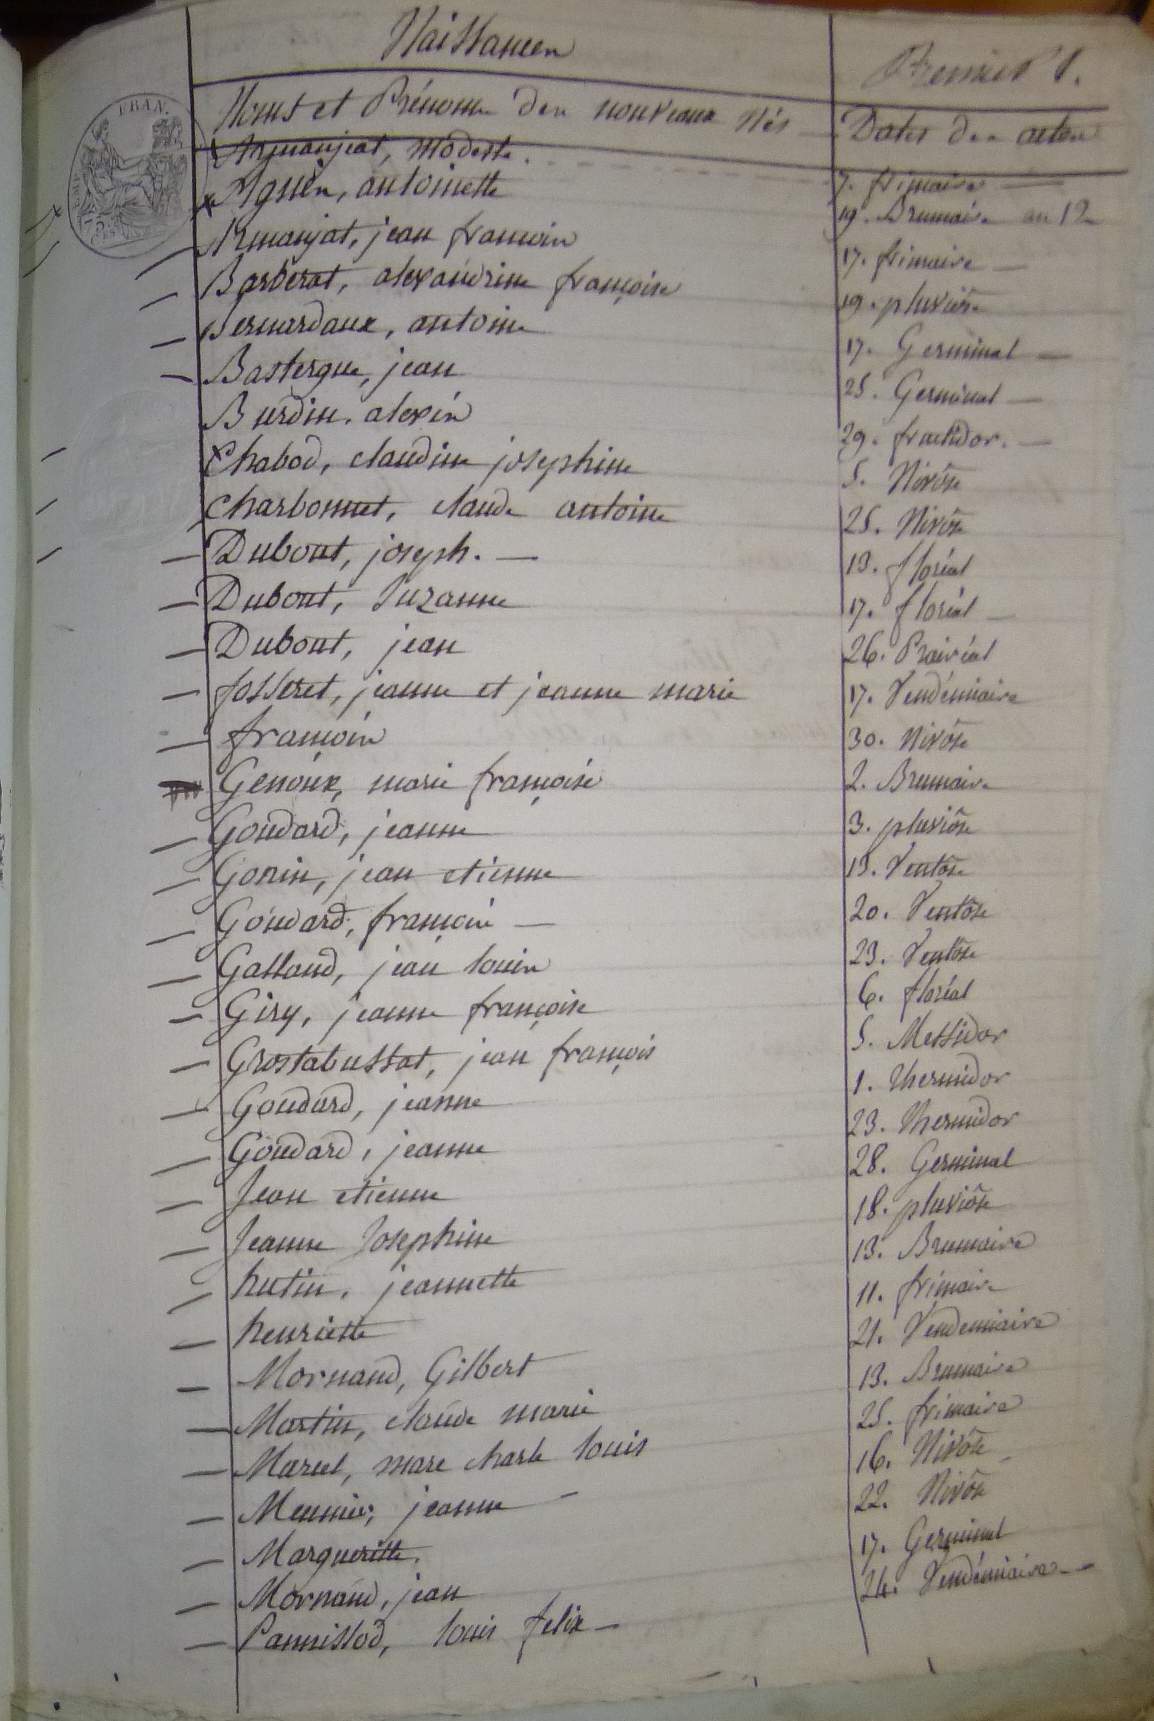 Naissances Premier S.
Noms et Prénoms des nouveaux Nés Dates des actes
Armanjeat, modeste. 7. frimaire —
Agnès, antoinette 19. Brumaire an 12
Armanjat, jean françois 17. frimaire —
Barberat, alexandrine françoise 19. pluviôse
Bernardaux, antoine 17. Germinal —
Bastergue, jean 25. Germinal —
Burdin. alexis 29. fructidor. —
Chabod, claudine josephine 5. Nivôse
Charbonnet, claude antoine 25. Nivôse
Dubout, joseph. — 19. floréal
Dubout, Suzanne 17. floréal —
Dubout, jean 26. Prairial
fosseret, jeanne et jeanne marie 17. Vendémiaire
françois 30. Nivôse
Genoux, marie françoise 2. Brumaire
Goudard, jeanne 3. pluviôse
Gonin, jean etienne 13. Ventôse
Goudard, françois — 20. Ventôse
Galland, jean louis 23. Ventôse
Giry, jeanne françoise 6. floréal
Grostabussat, jean françois 5. Messidor
Goudard, jeanne 1. thermidor
Goudard, jeanne 23. thermidor
Jean etienne 28. Germinal
Jeanne Josephine 18. pluviôse
hutin, jeannette 13. Brumaire
henriette 11. frimaire
Mornand, Gilbert 21. Vendemiaire
Martin, claude marie 13. Brumaire
Marcel, marc charle louis 25. frimaire
Meunier, jeanne — 16. Nivôse —
Margueritte. 22. Nivôse
Mornand, jean 17. Germinal
Pannissod, louis felix — 24. Vendémiaire —